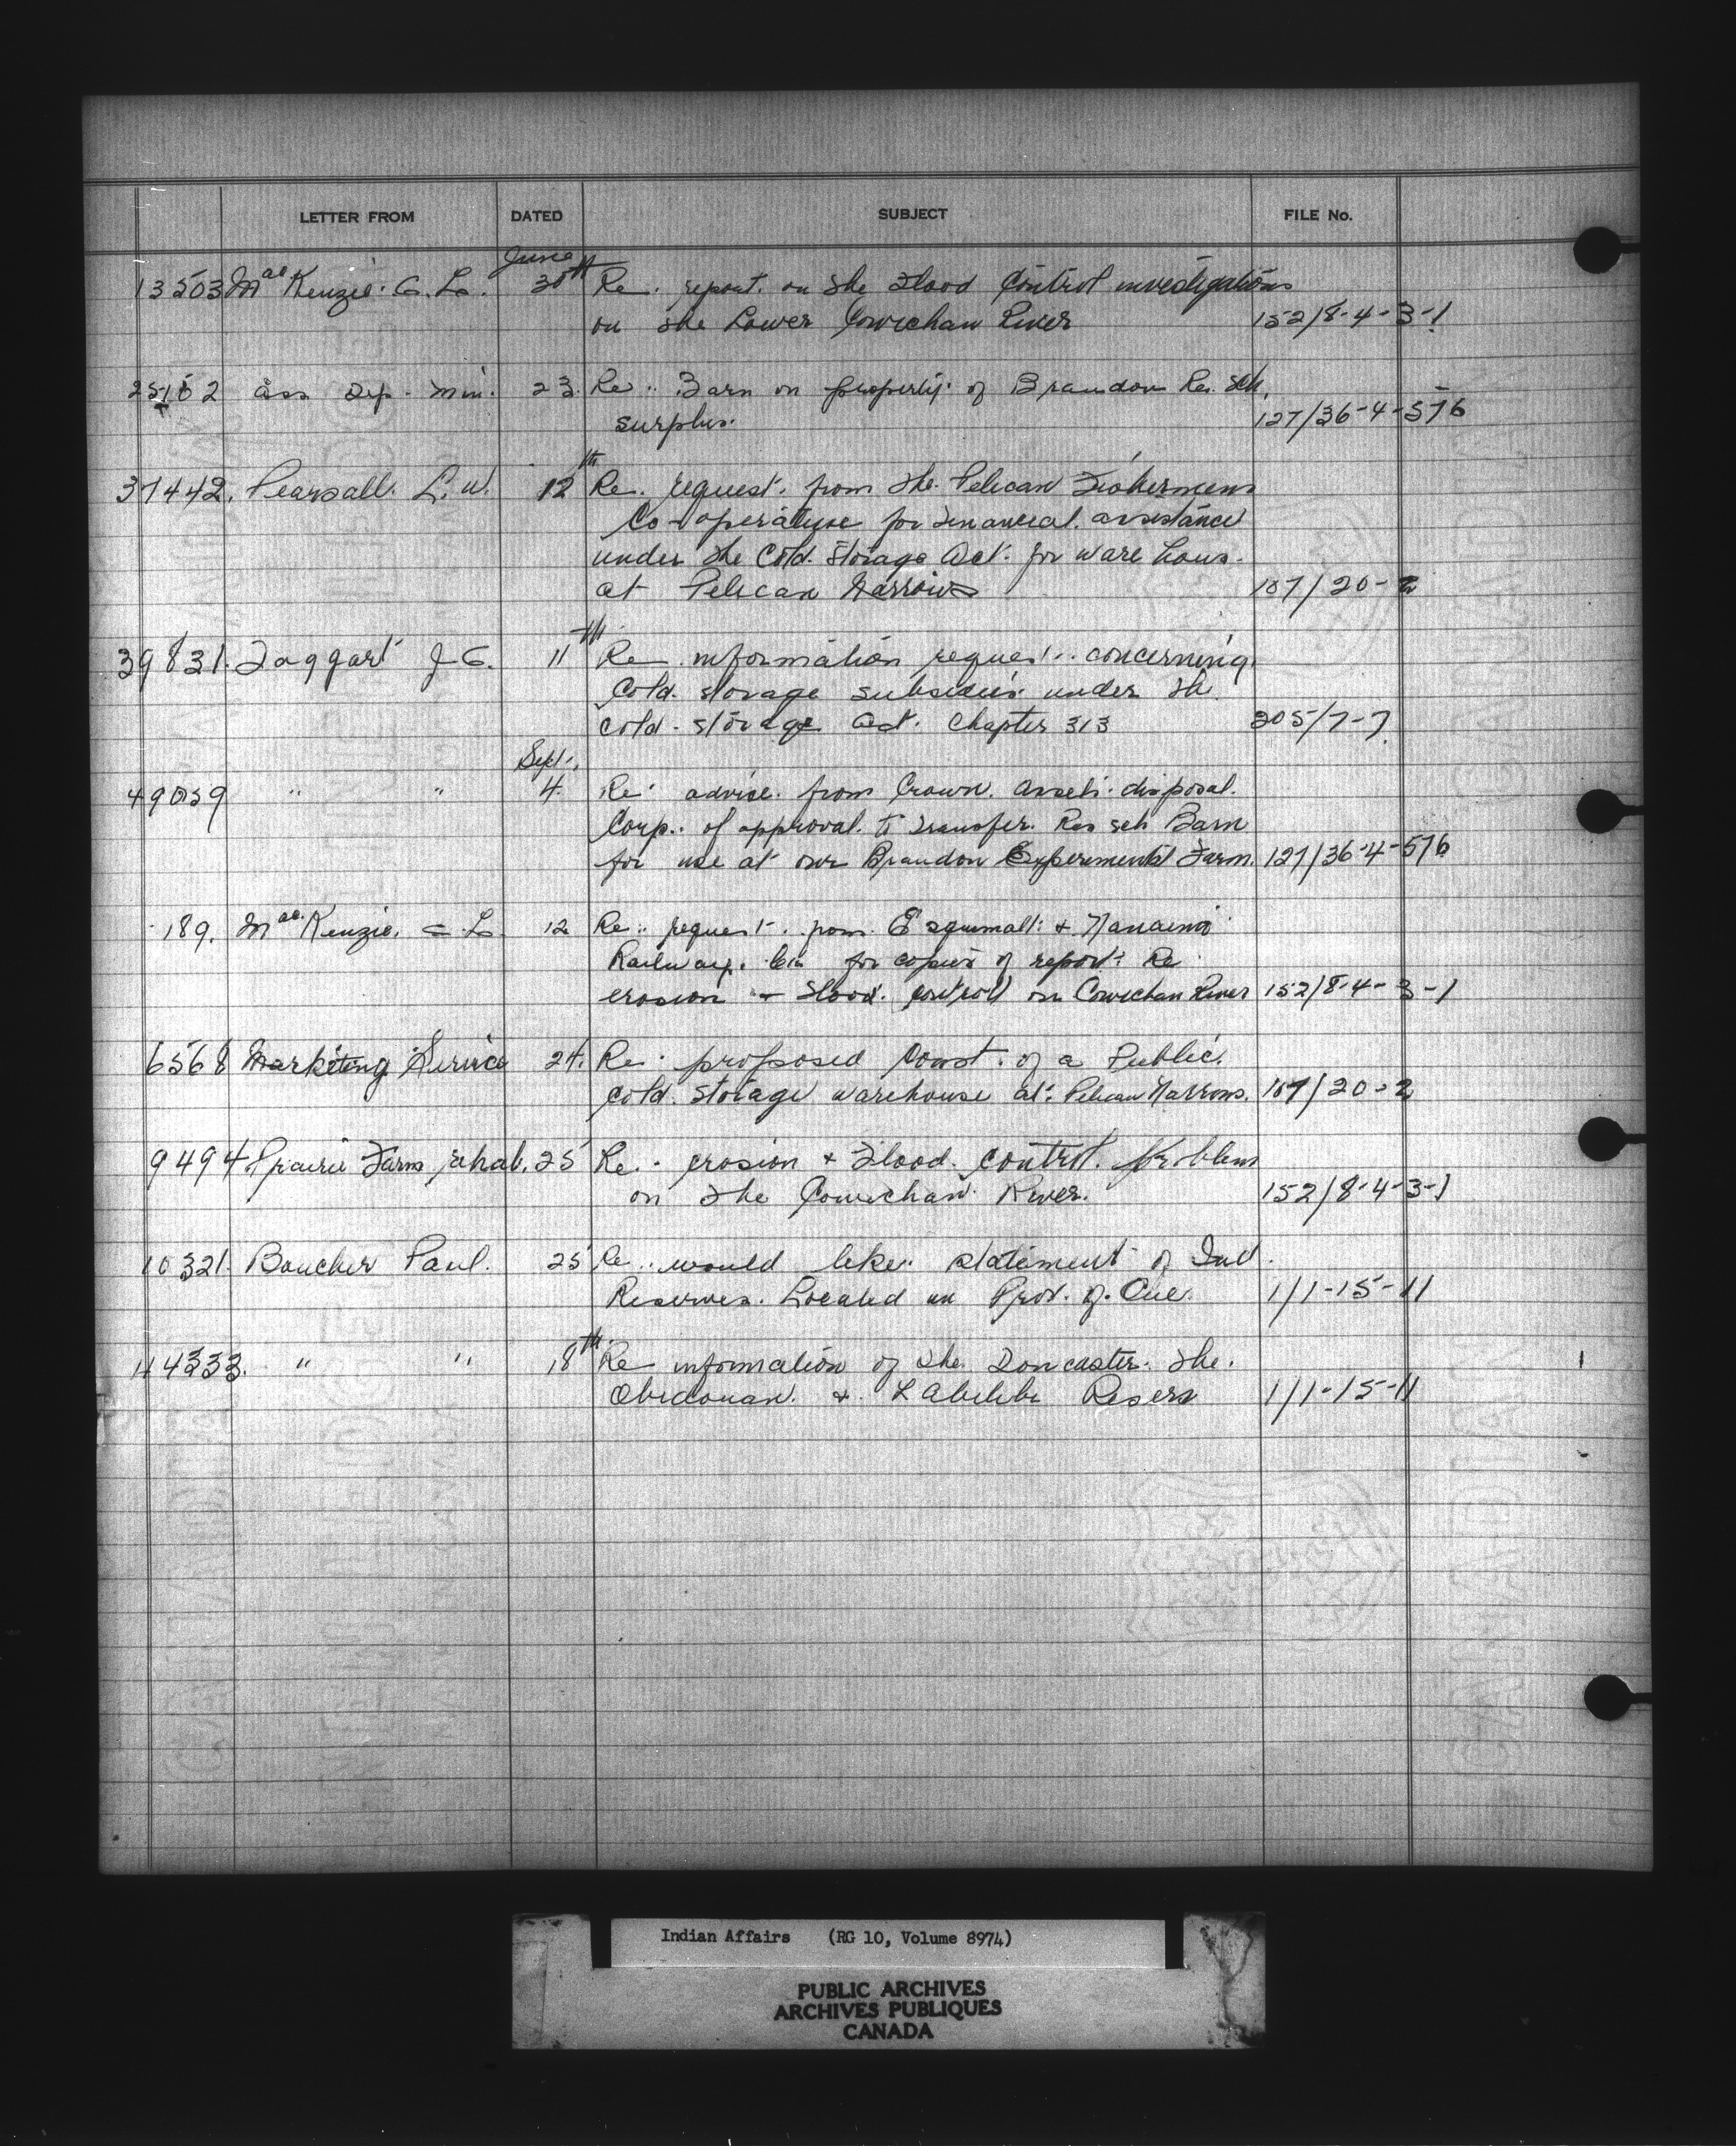 LETTER FROM DATED SUBJECT FILE No.
June
13503 MacKenzie. G. L. 30th Re. report. on the Flood Control investigations
on the Lower Cowichan River 152/8-4-3-1
25162 Ass Dep. Min. 23. Re.. Barn on property. of Brandon Re. Sch.
surplus. 127/36-4-576
37442. Pearsall. L. W. 12th Re. request. from the Pelican Fishermens
Co-operative for Financial. assistance
under the Cold. Storage Act. for ware hous.
at Pelican Narrows 107/20-2
39831. Taggart J G. 11th Re information request.. concerning
Cold. storage subsidies under the
cold. storage Act. Chapter 313 205/7-7
Sept.
49059 " " 4. Re. advice. from Crown. Assets. disposal.
Corp.. of approval. to transfer. Res sch Barn
for use at our Brandon Experimental Farm. 127/36-4-576
189. MacKenzie. G L 12 Re.. request. from. Esquimalt & Nanaimo
Railway. Co. for copies of report. Re
erosion + Flood. control on Cowichan River 152/8-4-3-1
6568 Marketing Service 24. Re. proposed Const. of a Public.
cold. storage warehouse at. Pelican Narrows. 107/20-2
9494 Prairie Farm rehab. 25 Re.. erosion + Flood. control. problem
on the Cowichan River. 152/8-4-3-1
10321. Boucher Paul. 25 Re.. would like. statement of Ind.
Reserves. Located in Prov. of. Que. 1/1-15-11
14333. " " 18th Re information of the Doncaster. the.
Obidouan. &. L Abitibi Reserv 1/1-15-11
Indian Affairs (RG 10, Volume 8974)
PUBLIC ARCHIVES
ARCHIVES PUBLIQUES
CANADA